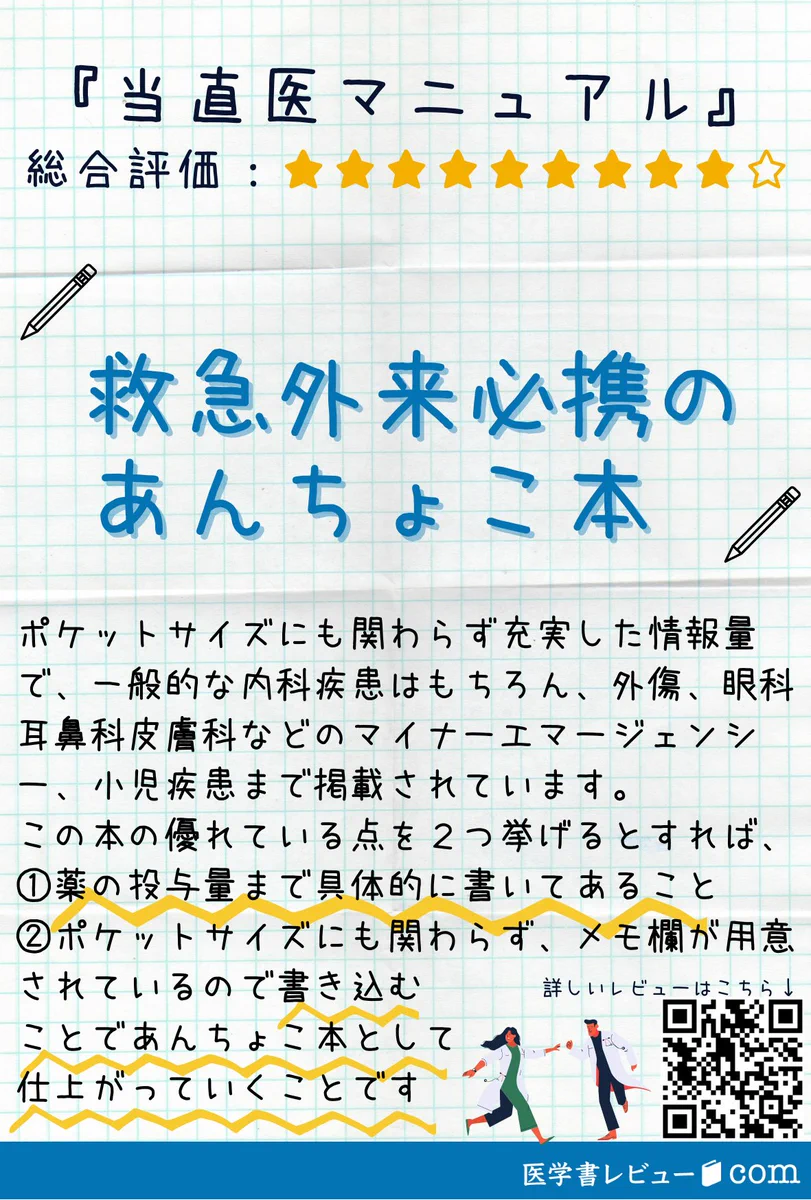 『当直医マニュアル』
総合評価：★★★★★★★★★☆
救急外来必携の
あんちょこ本
ポケットサイズにも関わらず充実した情報量
で、一般的な内科疾患はもちろん、外傷、眼科
耳鼻科皮膚科などのマイナーエマージェンシ
ー、小児疾患まで掲載されています。
この本の優れている点を２つ挙げるとすれば、
①薬の投与量まで具体的に書いてあること
②ポケットサイズにも関わらず、メモ欄が用意
されているので書き込む
ことであんちょこ本として
仕上がっていくことです
詳しいレビューはこちら↓
医学書レビューcom